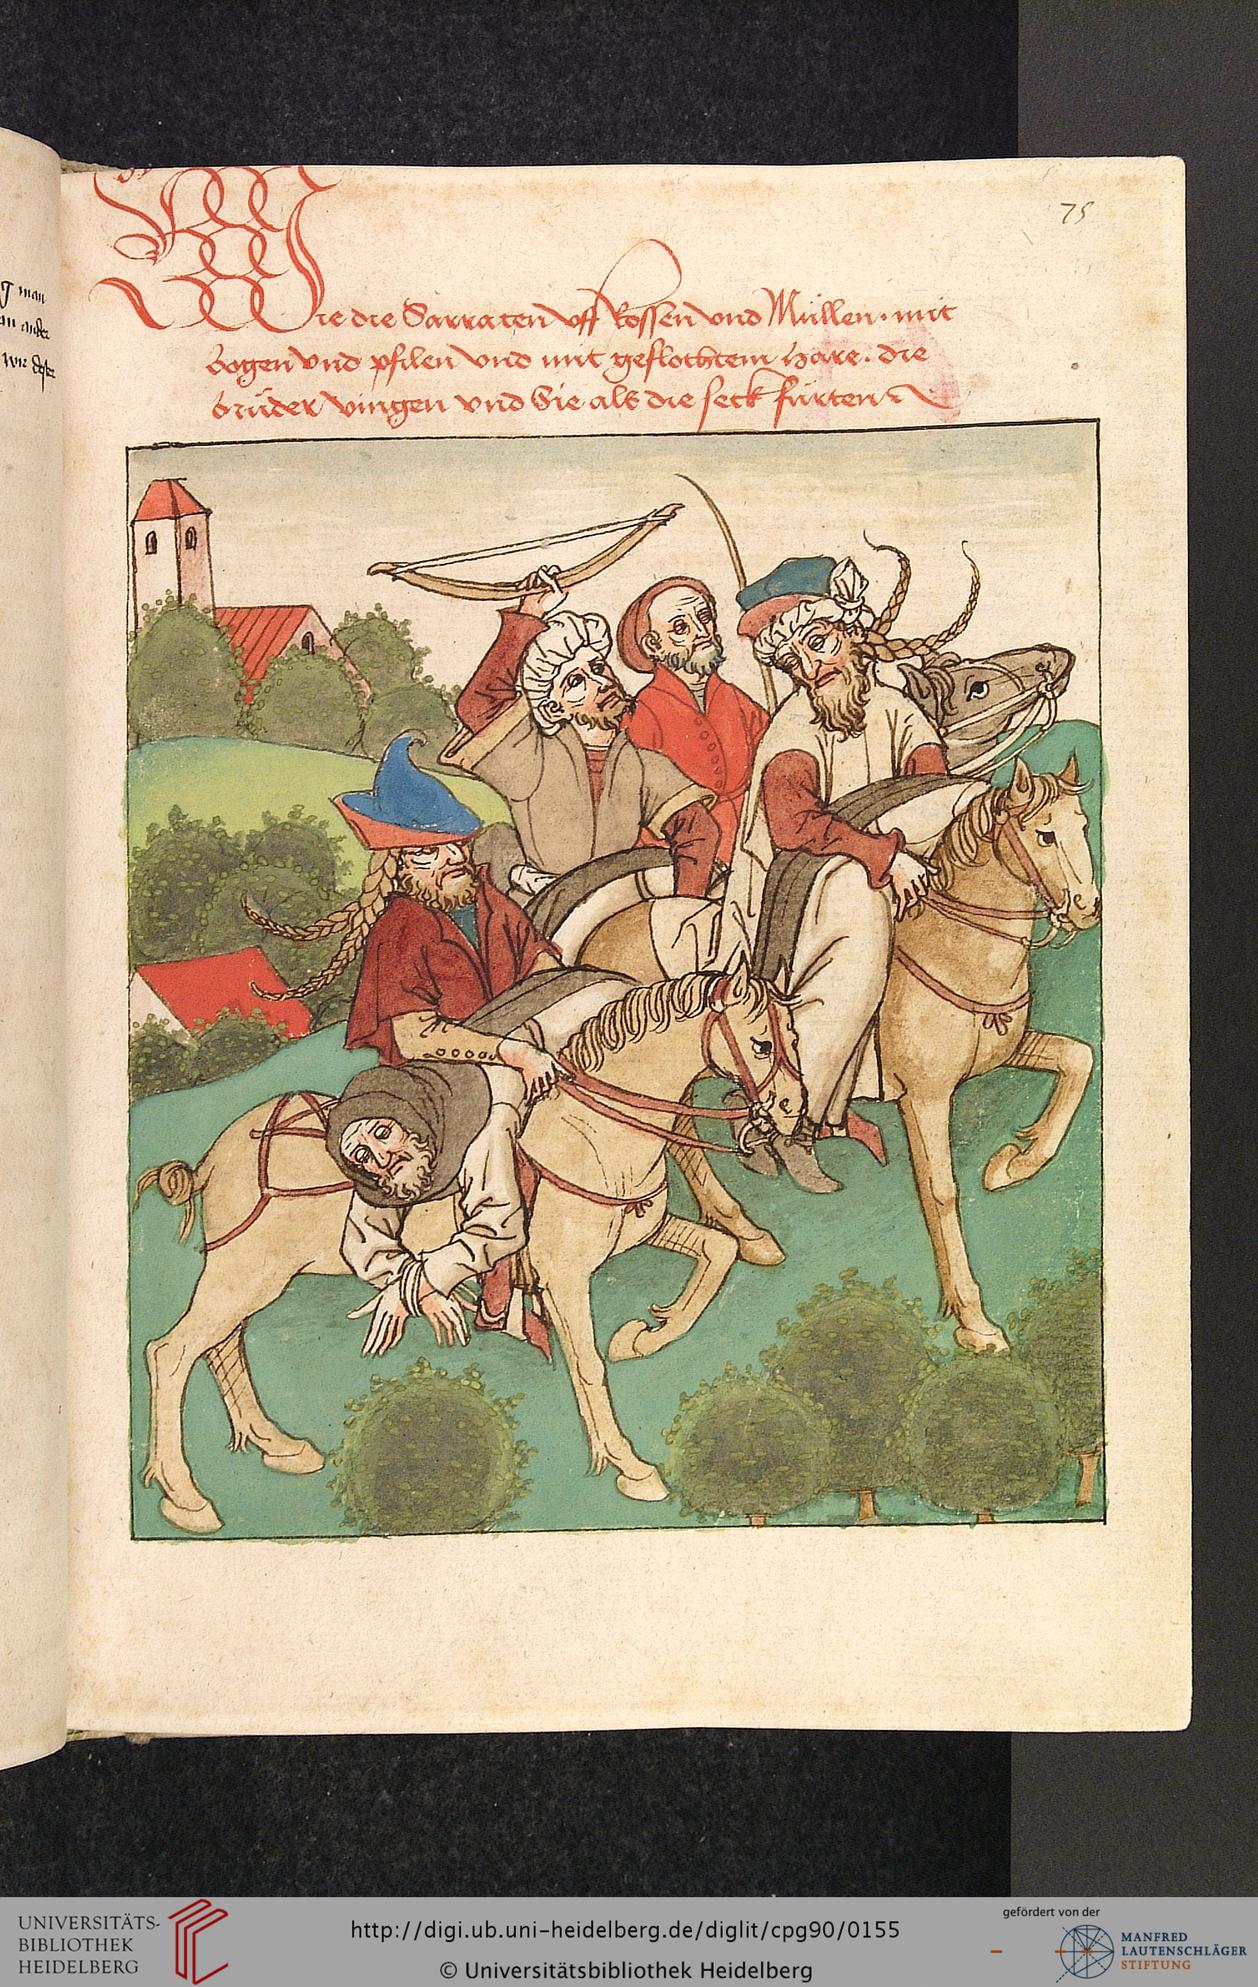 75
Wie die Sarracen vff Rossen vnd Müllen. mit
bogen vnd pfilen vnd mit geflochtem hare. die
brüder vingen vnd Sie als die seck fürten
man
UNIVERSITÄTS-
BIBLIOTHEK
HEIDELBERG
http://digi.ub.uni-heidelberg.de/diglit/cpg90/0155
© Universitätsbibliothek Heidelberg
gefördert von der
MANFRED
LAUTENSCHLÄGER
STIFTUNG